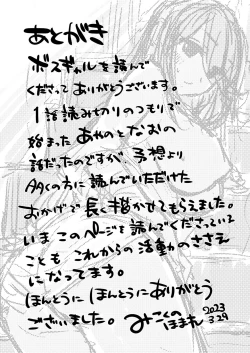 あとがき
ボスギャルを読んで
くださってありがとうございます。
1話読み切りのつもりで
始まったあやのとなおの
話だったのですが、予想より
多くの方に読んでいただけた
おかげで長く描かせてもらえました。
いまこのページを読んでくださっている
ことも これからの活動のささえ
になってます。
ほんとうにほんとうにありがとう
ございました。
2023
3.29